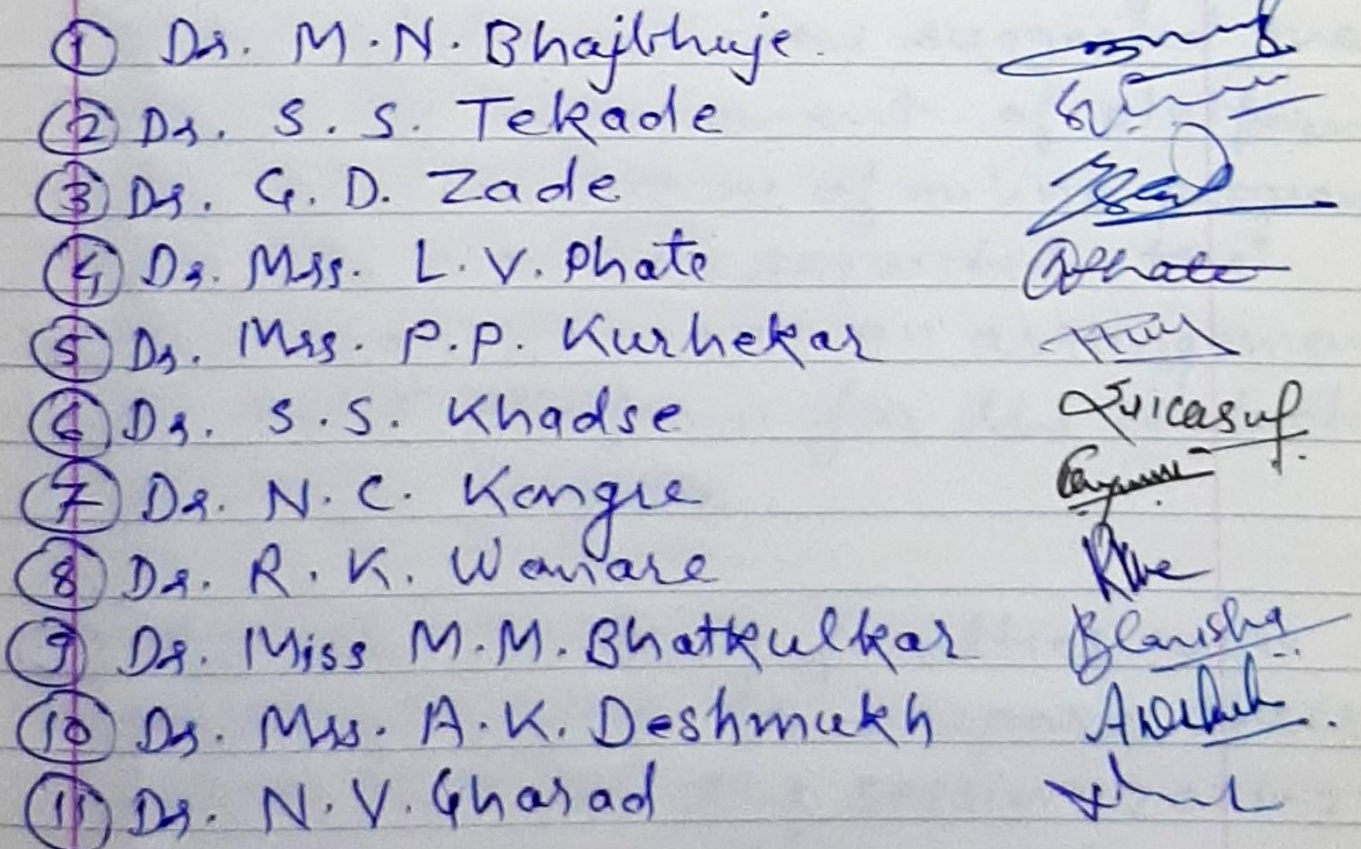 1 Dr. M.N. Bhajbhuje.
2 Dr. S. S. Tekade
3 Dr. G. D. Zade
4 Dr. Mrs. L. V. Phate
5 Dr. Mrs. P.P. Kurhekar
6 Dr. S.S. Khadse
7 Dr. N.C. Kongre
8 Dr. R. K. Wanare
9 Dr. Miss M.M. Bhatkulkar
10 Dr. Mrs. A.K. Deshmukh
11 Dr. N.V. Gharad